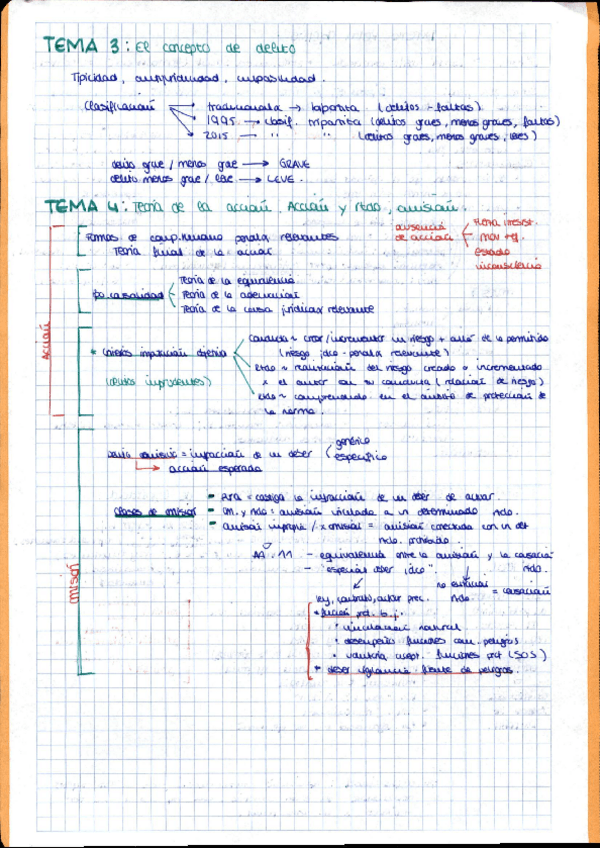 TEMA 3: El concepto de delito
Tipicidad, antijuridicidad, culpabilidad.
Clasificación → tradicionales → bipartita (delitos - faltas)
→ 1995 → clasif. tripartita (delitos graves, menos graves, faltas)
→ 2015 → " " (delitos graves, menos graves, leves)
delito grave / menos grave → GRAVE
delito menos grave / leve → LEVE.
TEMA 4: Teoría de la acción. Acción y rtdo, omisión.
ACCIÓN
Formas de comp. humano penalm. relevantes
Teoría final de la acción
ausencia de acción
Fuerza irresist.
mov. rfj.
estado inconsciencia
po. causalidad
Teoría de la equivalencia
Teoría de la adecuación
Teoría de la causa jurídicam relevante
* Criterios imputación objetiva
(delitos imprudentes)
Conducta ~ crear/incrementar un riesgo + allá de lo permitido
(riesgo jdco-penalm relevante)
Rtdo ~ realización del riesgo creado o incrementado
x el autor con su conducta (relación de riesgo)
Rtdo ~ comprendido en el ámbito de protección de
la norma.
OMISIÓN
Delito omisivo = infracción de un deber
genérico
específico
→ acción esperada
Clases de omisión
- Pura = castiga la infracción de un deber de actuar.
- Om. y rtdo: omisión vinculada a un determinado rtdo.
- Omisión impropia / x omisión = omisión conectada con un det
rtdo. prohibido.
Art. 11 - equivalencia entre la omisión y la causación rtdo.
- "especial deber jdco".
no evitación rtdo = causación
ley, contrato, actuar prec.
* función prot. b.j.
· vinculación natural
· desempeño funciones com. peligros
· voluntaria acept. funciones prot (SOS)
* deber vigilancia fuente de peligros.